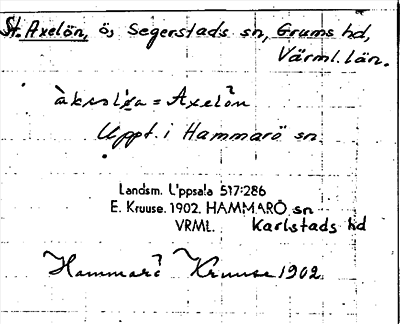 St. Axelön, ö, Segerstads sn, Grums hd,
Värml. län.
= Axelön
Uppt. i Hammarö sn.
Landsm. Uppsala 517:286
E. Kruuse. 1902. HAMMARÖ sn
VRML. Karlstads hd
Hammarö Kruuse 1902